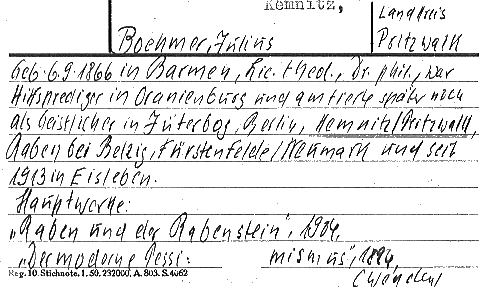 Kemnitz,
Landkreis
Pritzwalk
Boehmer, Julius
Geb. 6.9.1866 in Barmen, Lic. theol., Dr. phil., war
Hilfsprediger in Oranienburg und amtierte später noch
als Geistlicher in Jüterbog, Berlin, Kemnitz/Pritzwalk,
Raben bei Belzig, Fürstenfelde/Neumark und seit
1913 in Eisleben.
Hauptwerke:
„Raben und der Rabenstein", 1904,
„Der moderne Pessi- mismus", 1894,
Reg. 10. Stichnote. 1. 50. 232000. A. 803. S. 4062